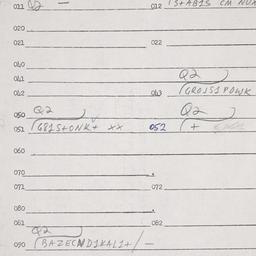 011 Q2 — 012 1S+AB1S CM NUK
020
021 022
040
Q2
041
042 043 GROJS1POWK
Q2 Q2
050
051 G81S+ONK+ xx 052 1+
060
070
071 072
080
081 082
Q2
090 BAZECND1KAL1+/—